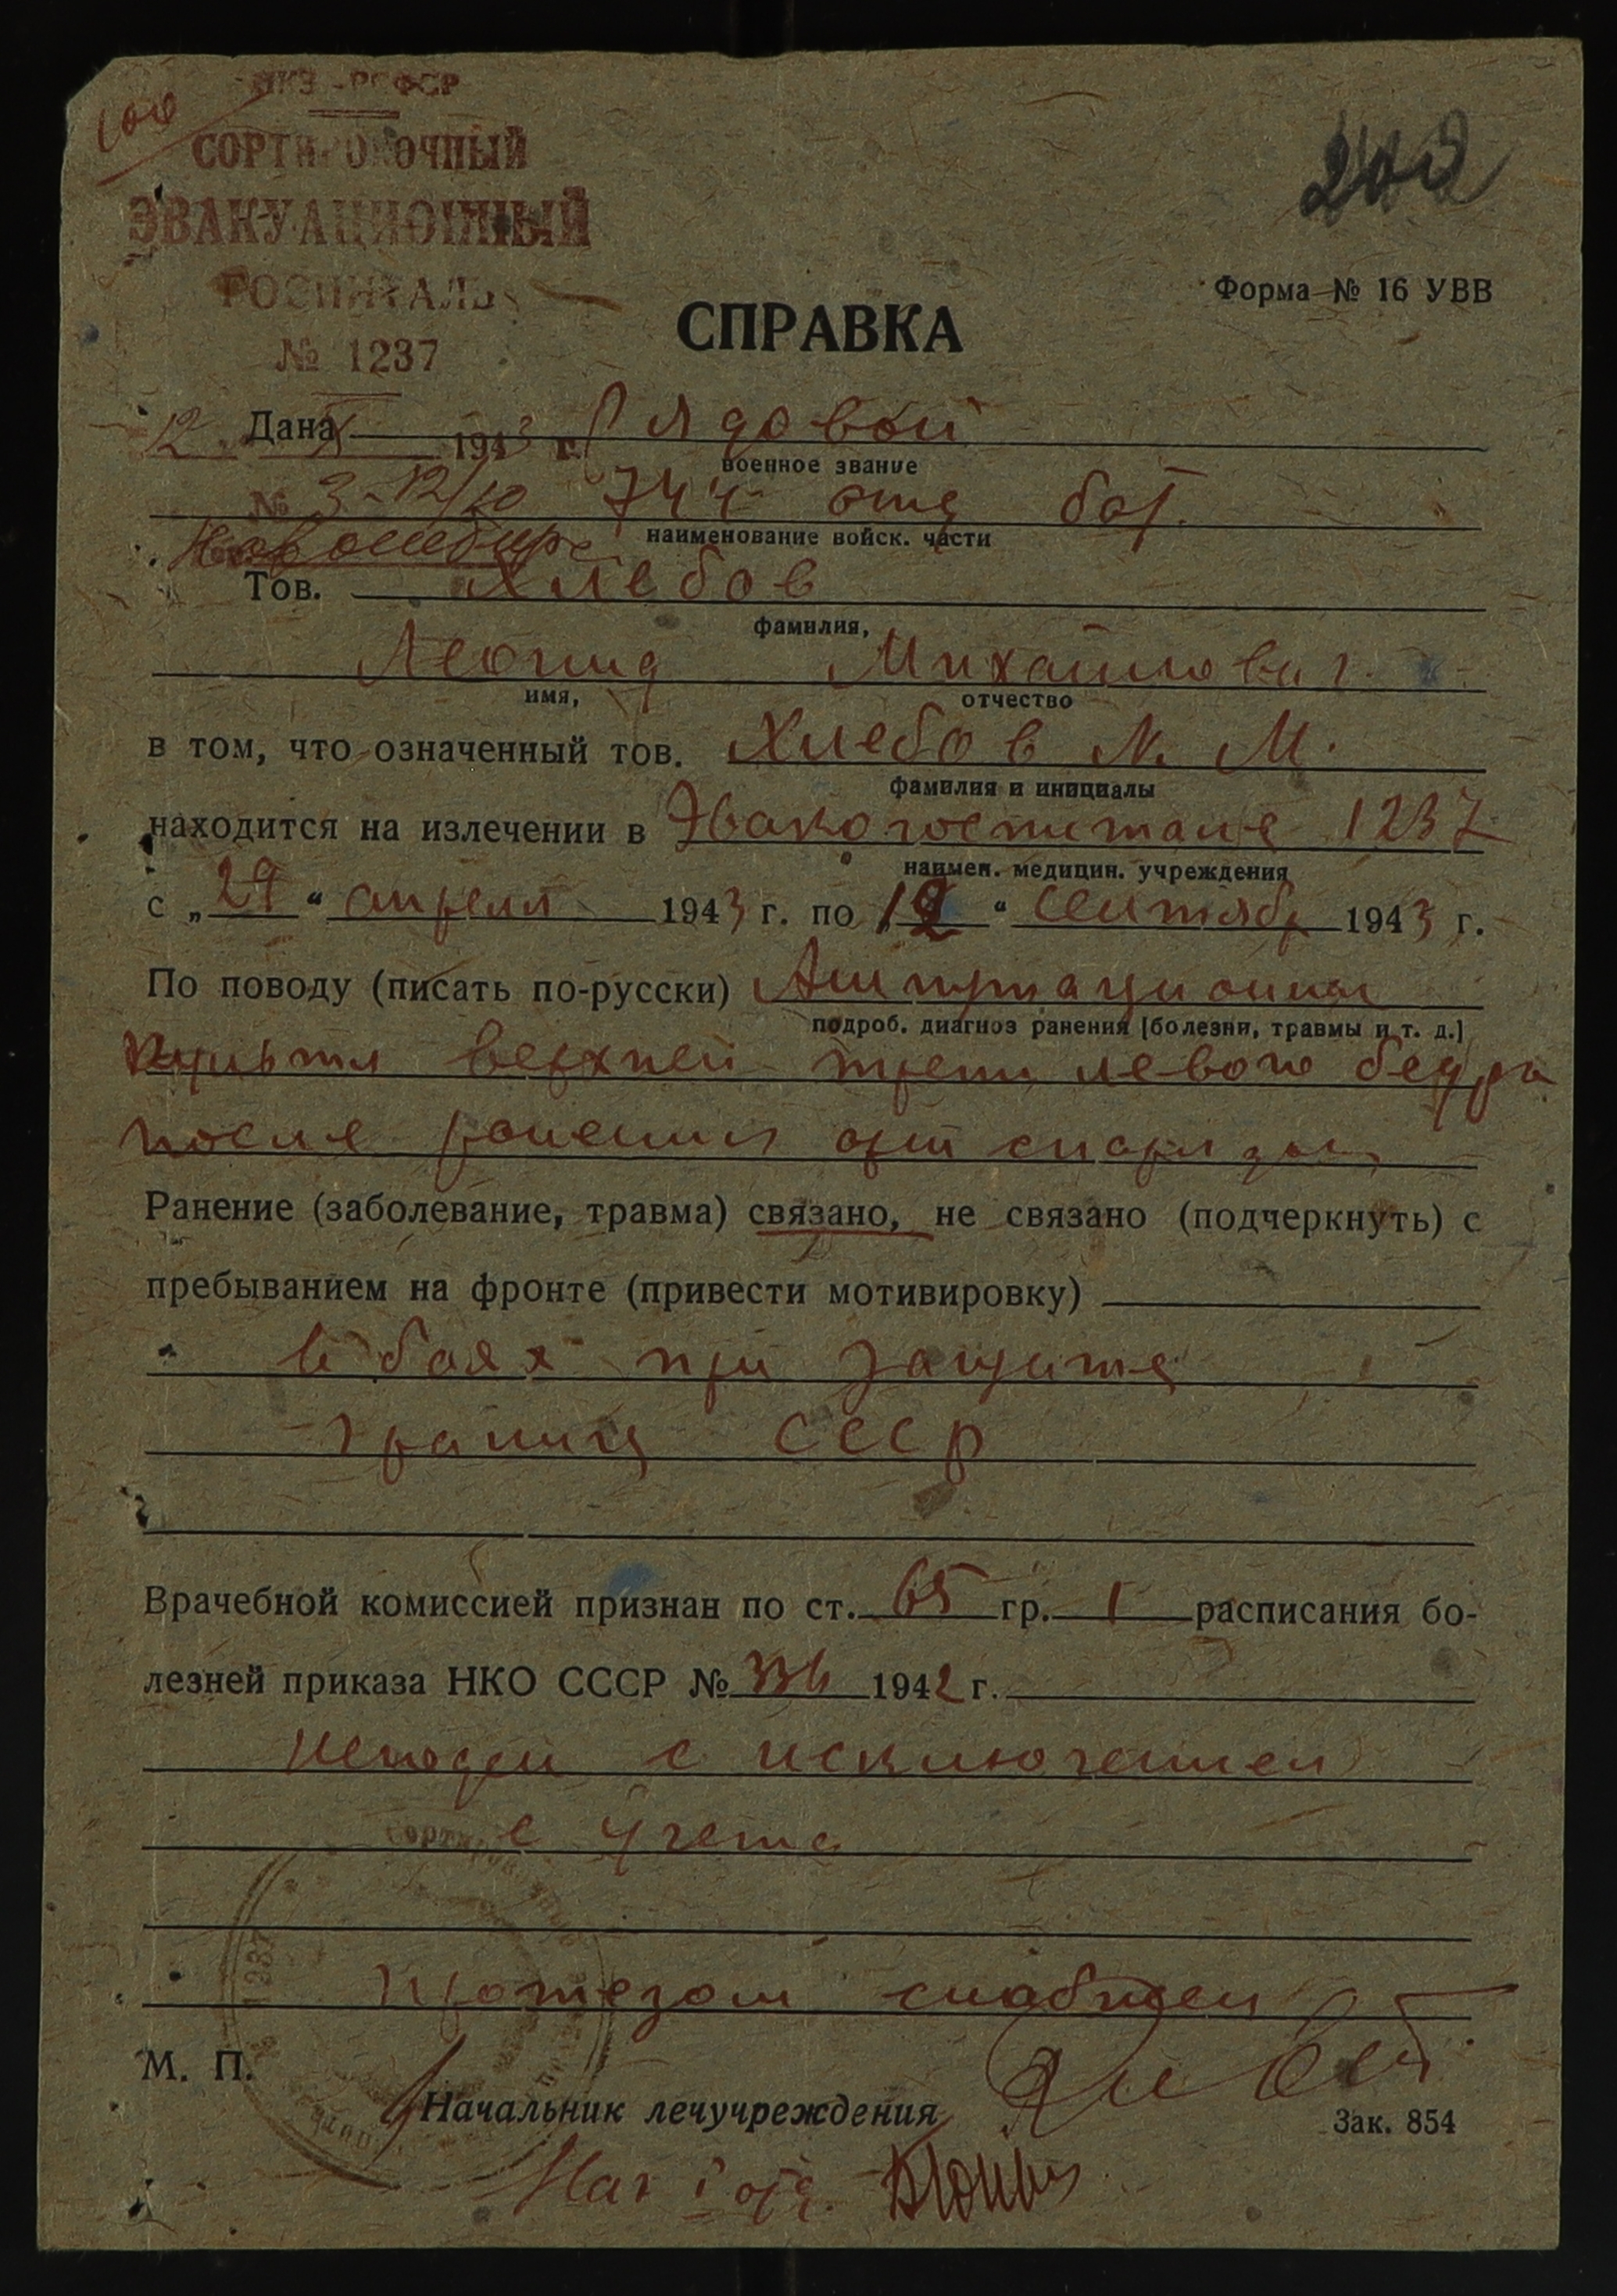 НКЗ-РСФСР
СОРТИРОВОЧНЫЙ
ЭВАКУАЦИОННЫЙ
ГОСПИТАЛЬ
№ 1237
Форма № 16 УВВ
СПРАВКА
Дана Рядовой
12 IX 1943 г.
военное звание
№ 3-12/10 744 отд бат.
наименование войск. части
Новосибирс
Тов. Хлебов
фамилия,
Леонид Михайлович
имя, отчество
в том, что означенный тов. Хлебов Л. М.
фамилия и инициалы
находится на излечении в Эвакогоспитале 1237
наимен. медицин. учреждения
с „29“ апреля 1943 г. по 12 “ сентябр 1943 г.
По поводу (писать по-русски) Ампутационная
подроб. диагноз ранения [болезни, травмы и т. д.]
культя верхней трети левого бедра
после ранения арт снарядом
Ранение (заболевание, травма) связано, не связано (подчеркнуть) с
пребыванием на фронте (привести мотивировку)
в боях при защите
границ СССР
Врачебной комиссией признан по ст. 65 гр. I расписания бо-
лезней приказа НКО СССР № 336 1942 г.
негоден с исключением
с учета
протезом снабжен
М. П.
Начальник лечучреждения
Зак. 854
Нач отд.